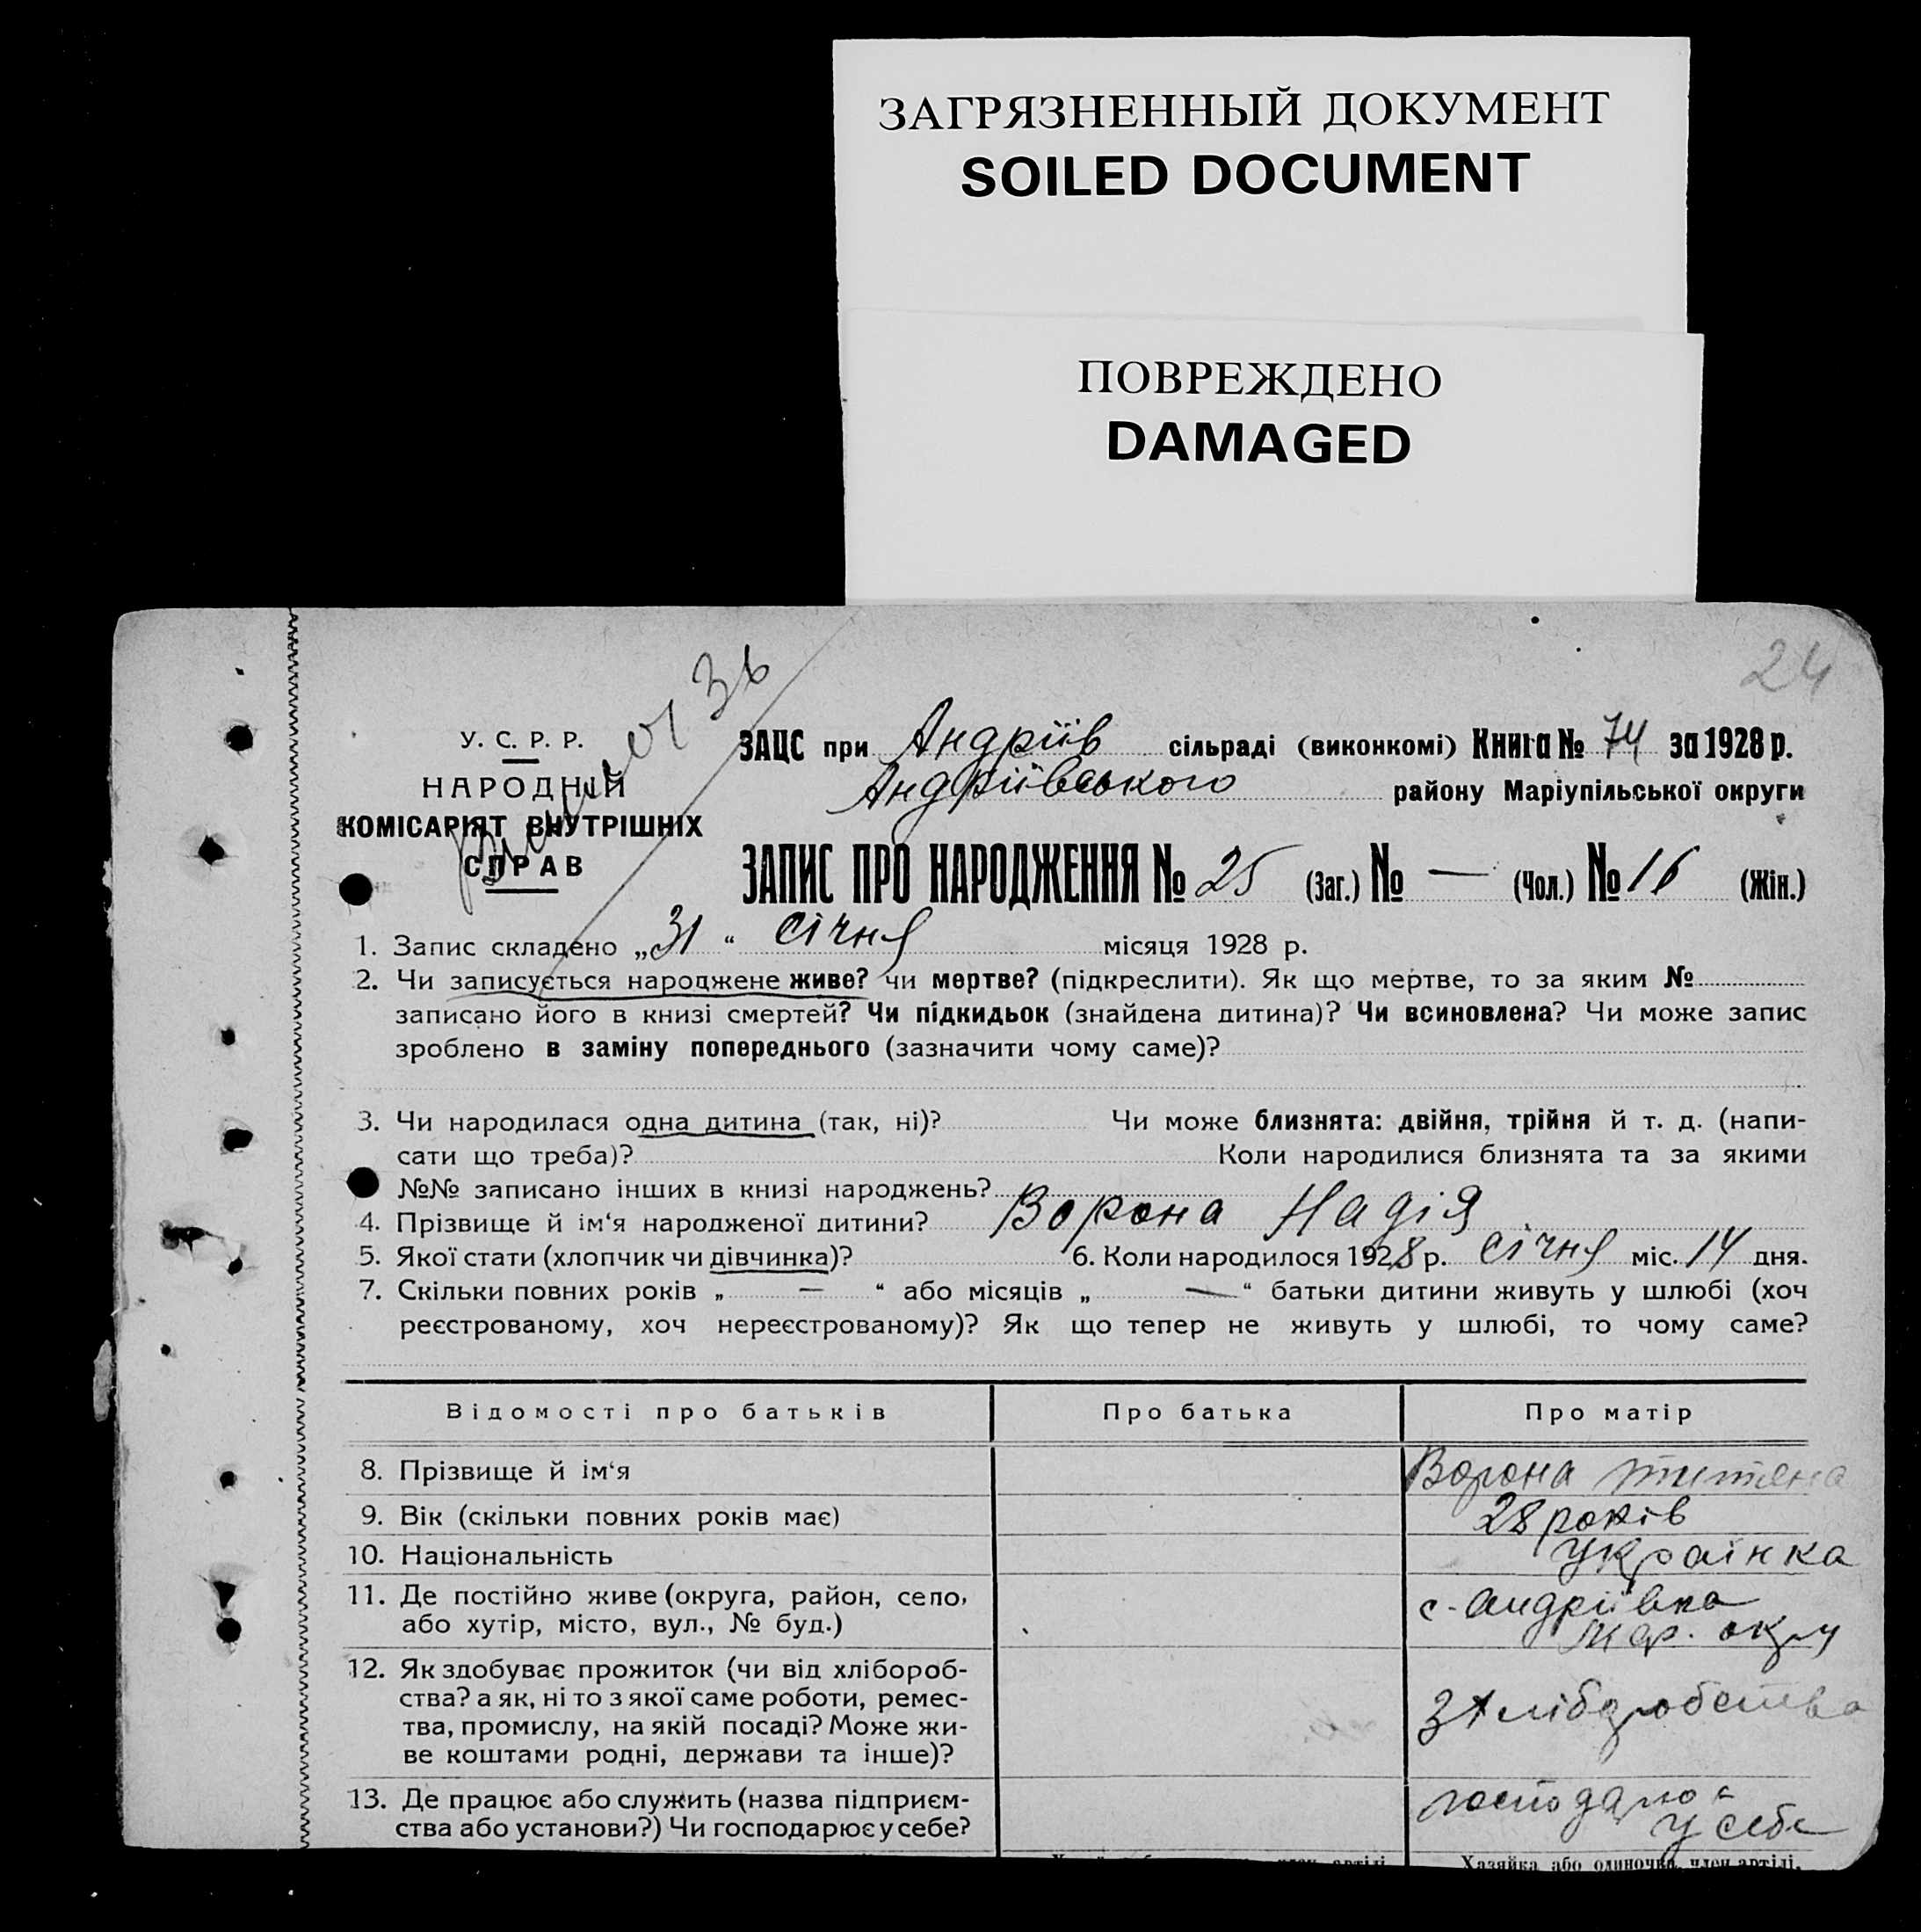 ЗАГРЯЗНЕННЫЙ ДОКУМЕНТ
SOILED DOCUMENT
ПОВРЕЖДЕНО
DAMAGED
24
У. С. Р. Р.
НАРОДНІЙ
КОМІСАРІЯТ ВНУТРІШНІХ
СПРАВ
ЗАЦС при Андріїв сільраді (виконкомі) Книга № 74 за 1928 р.
Андріївського району Маріупільської округи
ЗАПИС ПРО НАРОДЖЕННЯ № 25 (Заг.) № — (Чол.) № 16 (Жін.)
1. Запис складено „31“ січня місяця 1928 р.
2. Чи записується народжене живе? чи мертве? (підкреслити). Як що мертве, то за яким №
записано його в книзі смертей? Чи підкидьок (знайдена дитина)? Чи всиновлена? Чи може запис
зроблено в заміну попереднього (зазначити чому саме)?
3. Чи народилася одна дитина (так, ні)? Чи може близнята: двійня, трійня й т. д. (напи-
сати що треба)? Коли народилися близнята та за якими
№№ записано інших в книзі народжень?
4. Прізвище й ім‘я народженої дитини? Ворона Надія
5. Якої стати (хлопчик чи дівчинка)? 6. Коли народилося 1928 р. січня міс. 14 дня.
7. Скільки повних років „ — “ або місяців „ — “ батьки дитини живуть у шлюбі (хоч
реєстрованому, хоч нереєстрованому)? Як що тепер не живуть у шлюбі, то чому саме?
Відомості про батьків Про батька Про матір
8. Прізвище й ім‘я Ворона
9. Вік (скільки повних років має) 28 років
10. Національність українка
11. Де постійно живе (округа, район, село, с. Андріївка
або хутір, місто, вул., № буд.) Мар. окру
12. Як здобуває прожиток (чи від хлібороб-
ства? а як, ні то з якої саме роботи, ремес- З хліборобства
тва, промислу, на якій посаді? Може жи-
ве коштами родні, держави та інше)?
13. Де працює або служить (назва підприєм-
ства або установи?) Чи господарює у себе? у себе
Хазяйка або одиночка, член артілі,